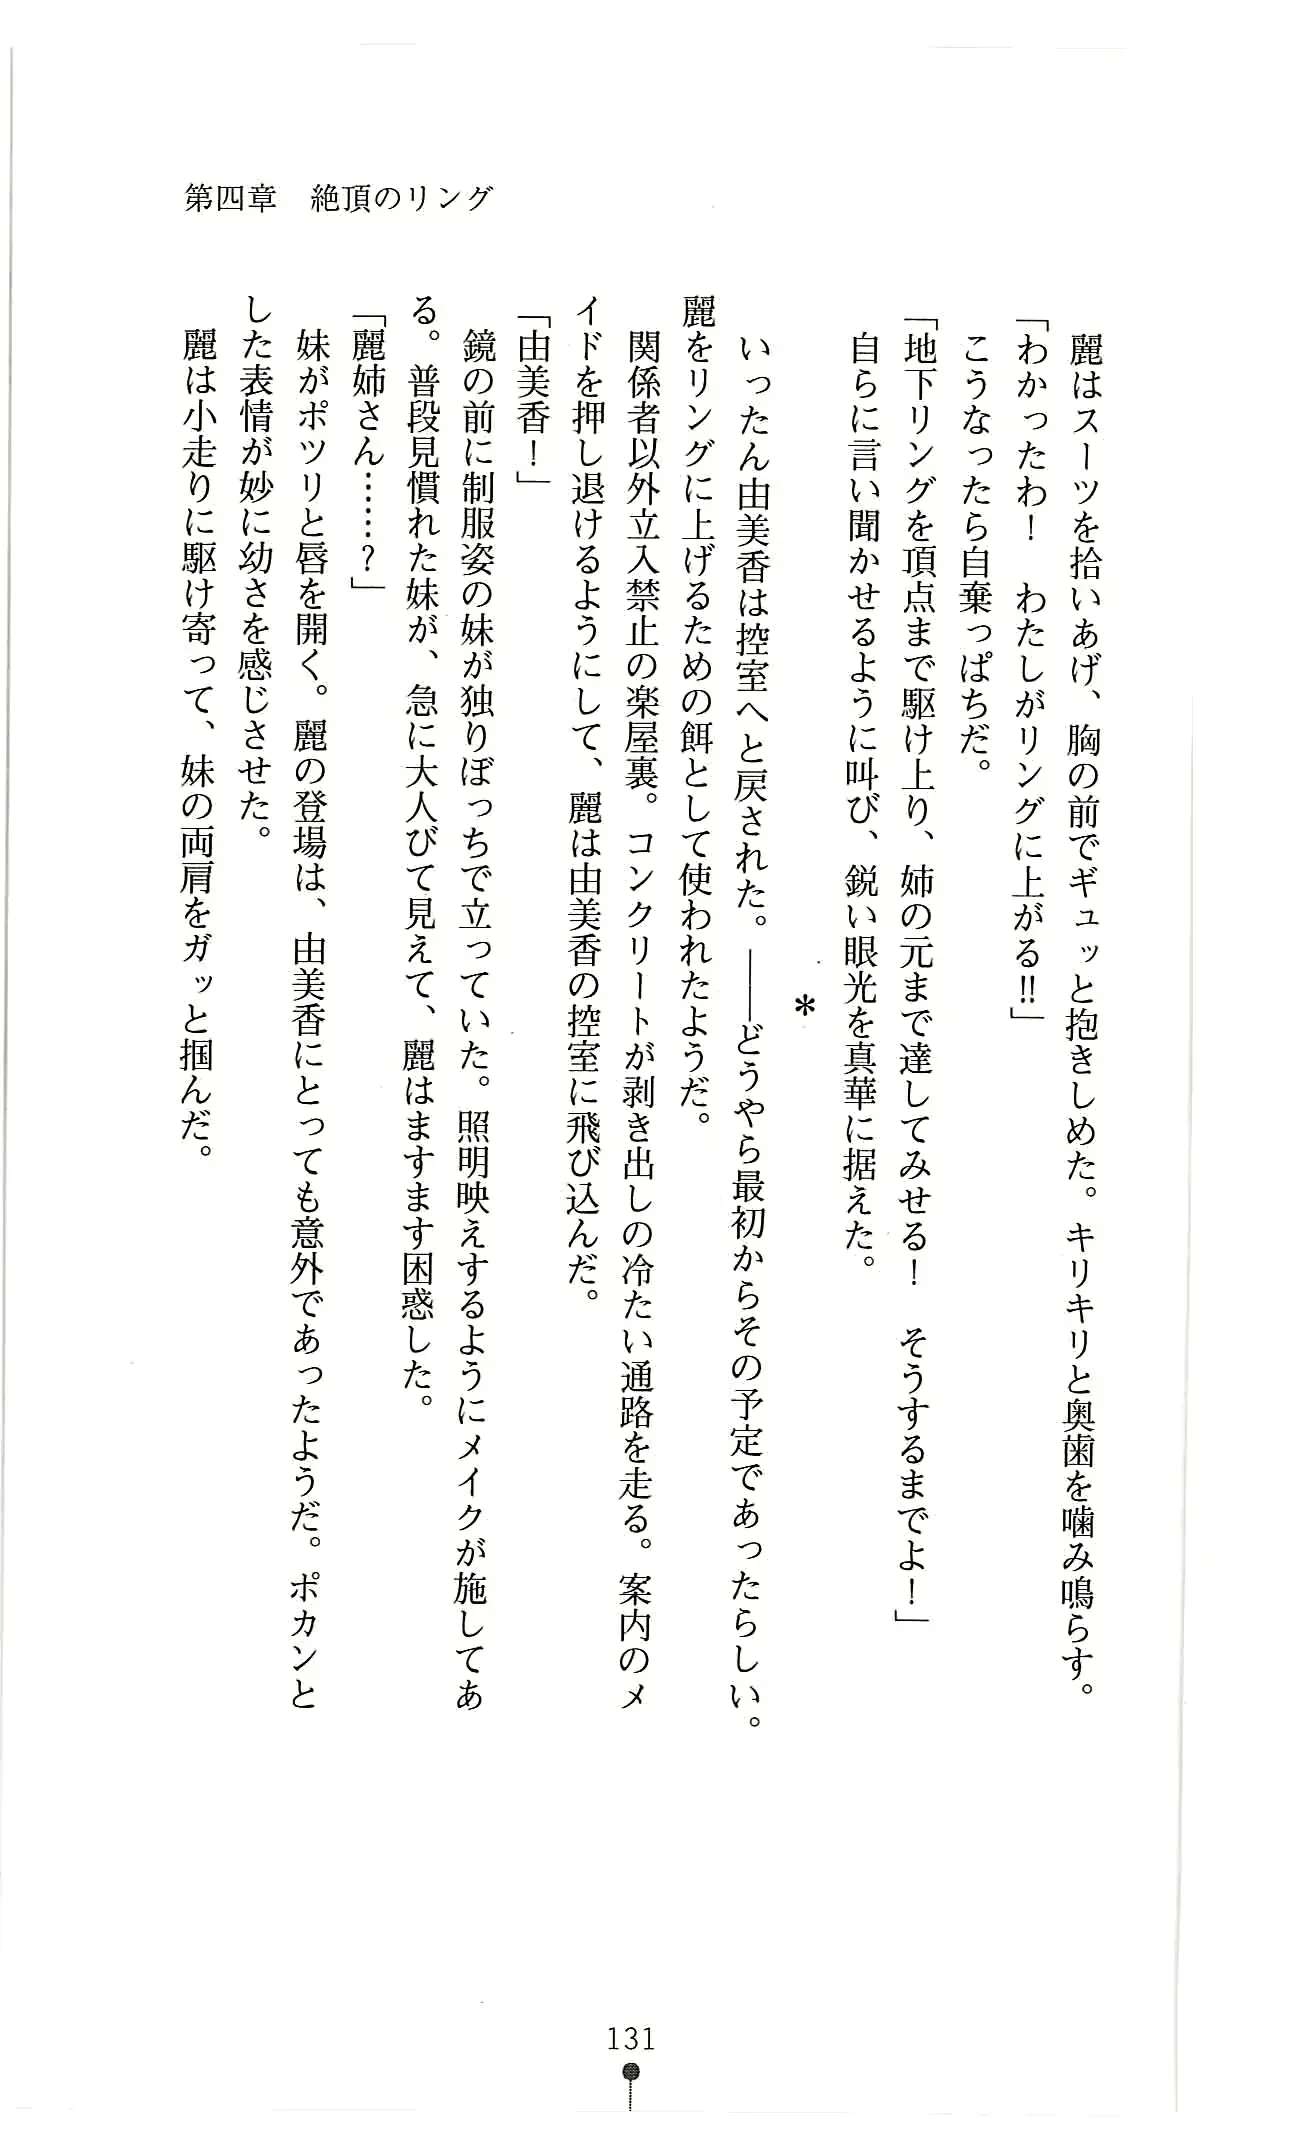 第四章　絶頂のリング
麗はスーツを拾いあげ、胸の前でギュッと抱きしめた。キリキリと奥歯を噛み鳴らす。
「わかったわ！　わたしがリングに上がる!!」
こうなったら自棄っぱちだ。
「地下リングを頂点まで駆け上り、姉の元まで達してみせる！　そうするまでよ！」
自らに言い聞かせるように叫び、鋭い眼光を真華に据えた。
＊
いったん由美香は控室へと戻された。――どうやら最初からその予定であったらしい。
麗をリングに上げるための餌として使われたようだ。
関係者以外立入禁止の楽屋裏。コンクリートが剥き出しの冷たい通路を走る。案内のメ
イドを押し退けるようにして、麗は由美香の控室に飛び込んだ。
「由美香！」
鏡の前に制服姿の妹が独りぼっちで立っていた。照明映えするようにメイクが施してあ
る。普段見慣れた妹が、急に大人びて見えて、麗はますます困惑した。
「麗姉さん……？」
妹がポツリと唇を開く。麗の登場は、由美香にとっても意外であったようだ。ポカンと
した表情が妙に幼さを感じさせた。
麗は小走りに駆け寄って、妹の両肩をガッと掴んだ。
131